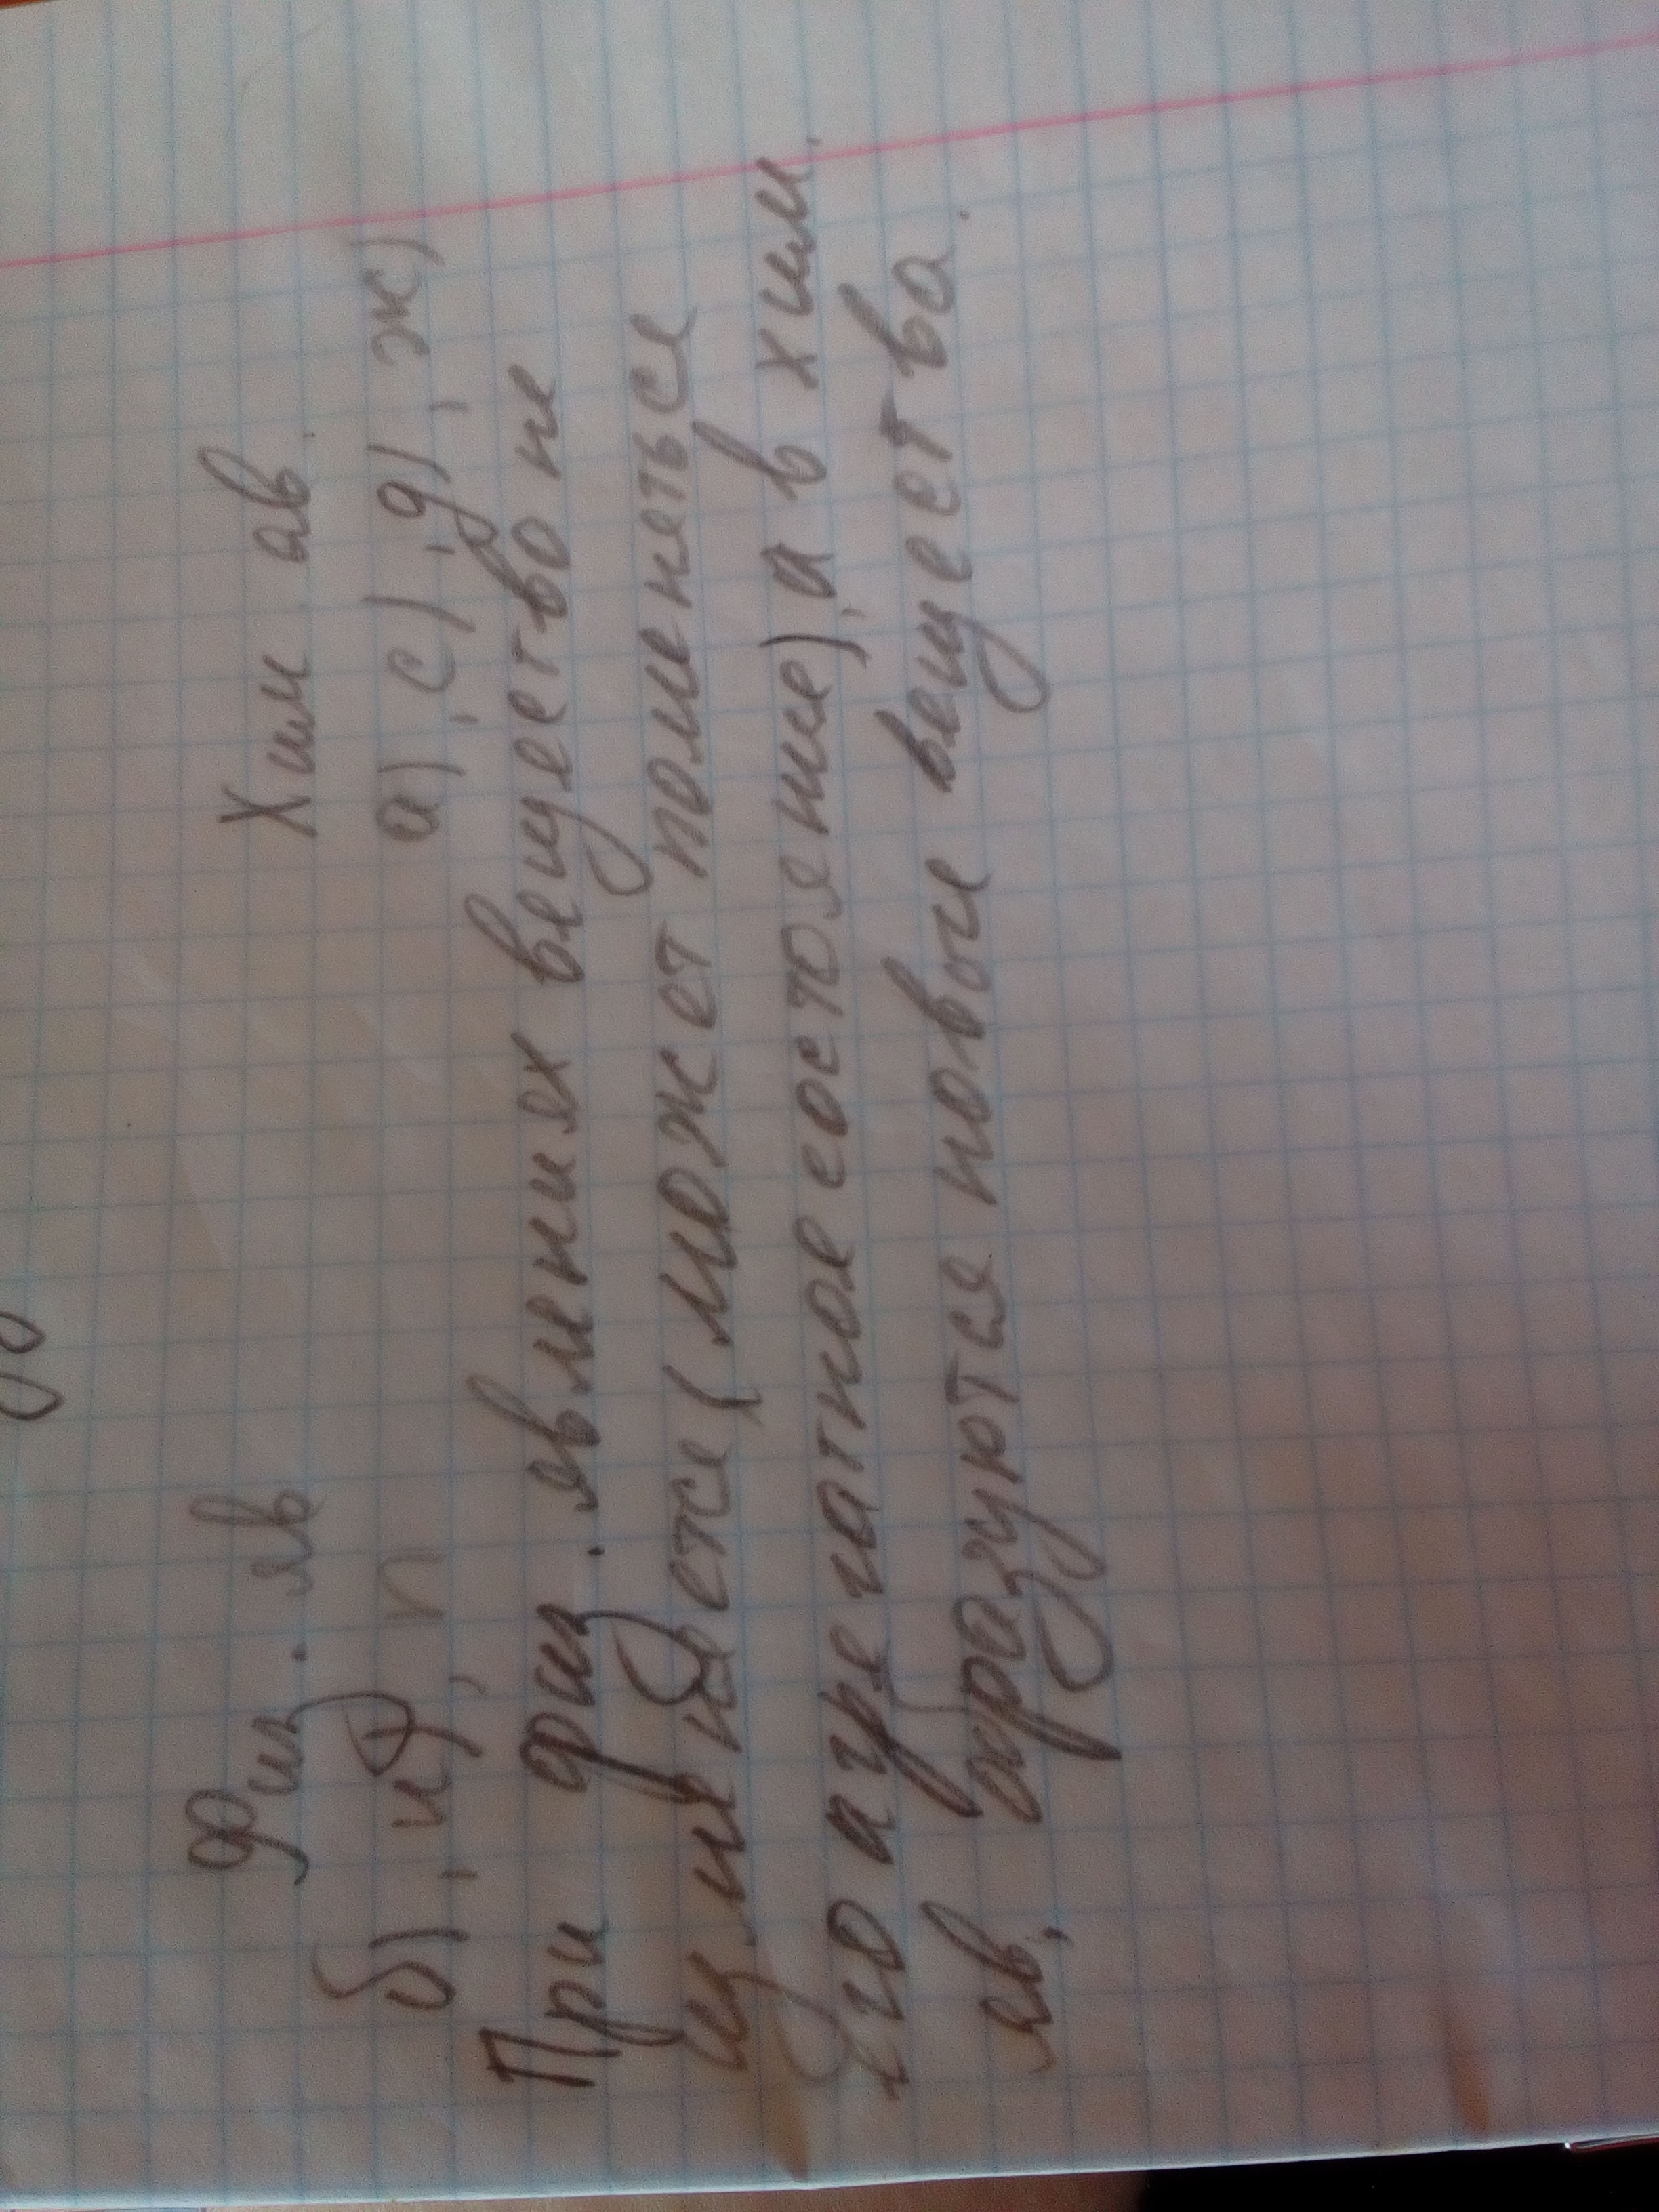 Физ. яв Хим яв.
б), и), п а), с), д), ж)
При физ. явлениях вещество не
изменяется (может поменяться
его агрегатное состояние), а в хим.
яв. образуются новые вещества.